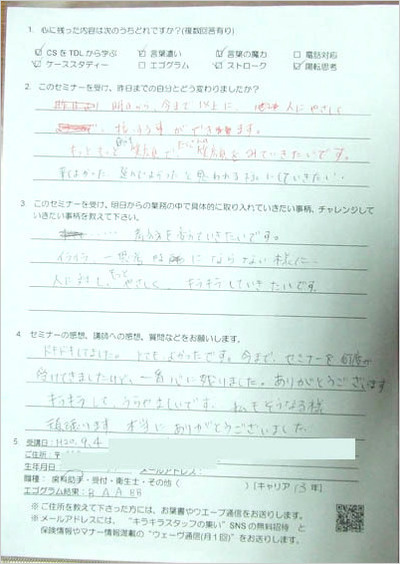 1. 心に残った内容は次のうちどれですか?(複数回答有り)
☑ CSをTDLから学ぶ ☑ 言葉遣い ☑ 言葉の魔力 □ 電話対応
☑ ケーススタディー □ エゴグラム ☑ ストローク ☑ 陽転思考
2. このセミナーを受け、昨日までの自分とどう変わりましたか?
明日から、今まで以上に 人にやさしく
事ができます。
もっともっと 笑顔で 笑顔を していきたいです。
3. このセミナーを受け、明日からの業務の中で具体的に取り入れていきたい事柄、チャレンジして
いきたい事柄を教えて下さい。
を変えていきたいです。
イライラ にならない様に
人に対し、もっと やさしく、キラキラしていきたいです
4. セミナーの感想、講師への感想、質問などをお願いします。
ドキドキしてました。とてもよかったです。今まで、セミナーを何度か
受けてきましたけど、一番心に残りました。ありがとうございます
キラキラしてうらやましいです。私もそうなる様
頑張ります 本当にありがとうございました
5. 受講日:H20. 9. 4
ご住所:〒
生年月日 メールアドレス:
職種:歯科助手・受付・衛生士・その他( )【キャリア 13年】
エゴグラム結果: B A A BB
※ ご住所を教えて下さった方には、お葉書やウエーブ通信をお送りします。
※ メールアドレスには、“キラキラスタッフの集い”SNSの無料招待 と
保険情報やマナー情報満載の“ウェーヴ通信(月1回)”をお送りします。